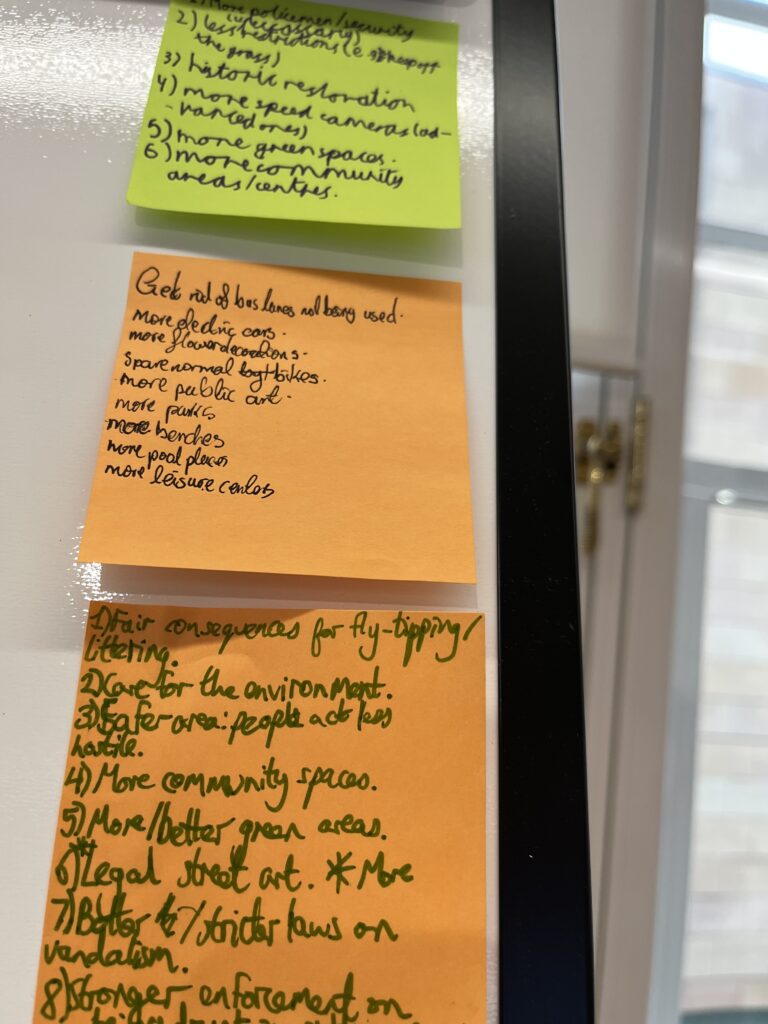 1) More policemen/security
2) less restrictions (e.g. keep off
the grass)
3) historic restoration
4) more speed cameras (ad-
-vanced ones)
5) more green spaces.
6) more community
areas/centres.
Get rid of bus lanes not being used.
more electric cars.
more flower decorations.
Spare normal bikes.
more public art.
more parks
more benches
more pool places
more leisure centers
1) Fair consequences for fly-tipping/
littering.
2) Care for the environment.
3) Safer area: people act less
hostile.
4) More community spaces.
5) More/better green areas.
6) Legal street art. * More
7) Better /stricter laws on
vandalism.
8) Stronger enforcement on